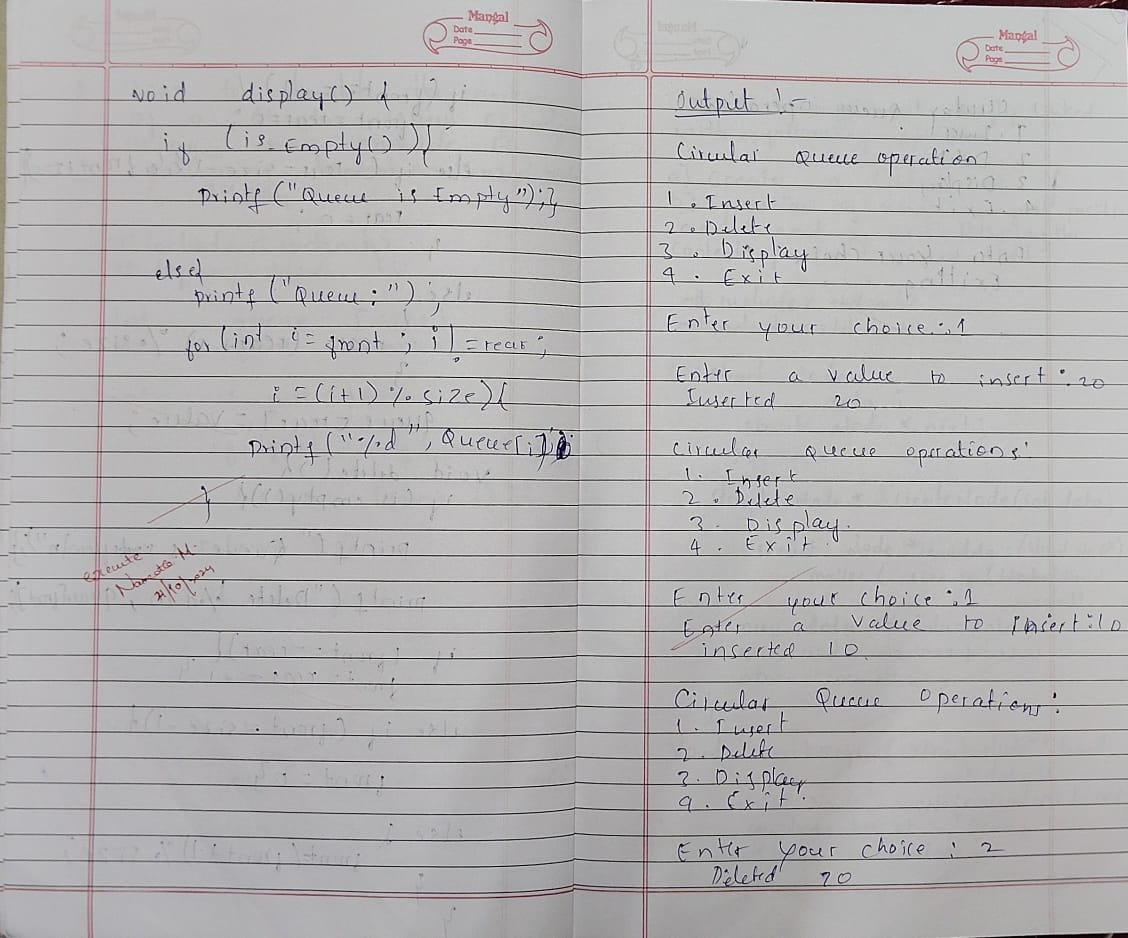 Mangal
Date
Page
void display() {
if (is-Empty()){
printf ("Queue is Empty");}
else{
printf ("Queue:");
for (int i = front ; i != rear ;
i = (i+1) % size) {
printf ("%d", Queue[i])
}
execute
Namrata M.
21/10/2024
Mangal
Date
Page
Output :-
Circular Queue operation
1. Insert
2. Delete
3. Display
4. Exit
Enter your choice : 1
Enter a value to insert : 20
Inserted 20
Circular Queue operations:
1. Insert
2. Delete
3. Display.
4. Exit
Enter your choice : 1
Enter a value to Insert : 10
inserted 10
Circular Queue Operations:
1. Insert
2. Delete
3. Display
4. Exit.
Enter your choice : 2
Deleted 20